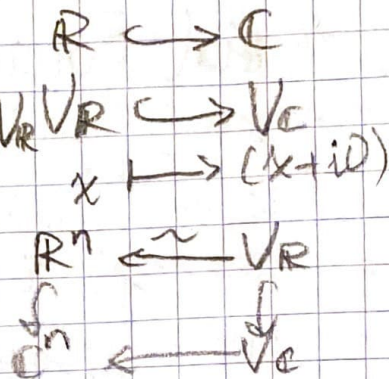 ℝ ↪ ℂ
V_ℝ V_ℝ ↪ V_ℂ
x ↦ (x+i0)
ℝⁿ ⟵~ V_ℝ
↓ ↓
ℂⁿ ⟵ V_ℂ